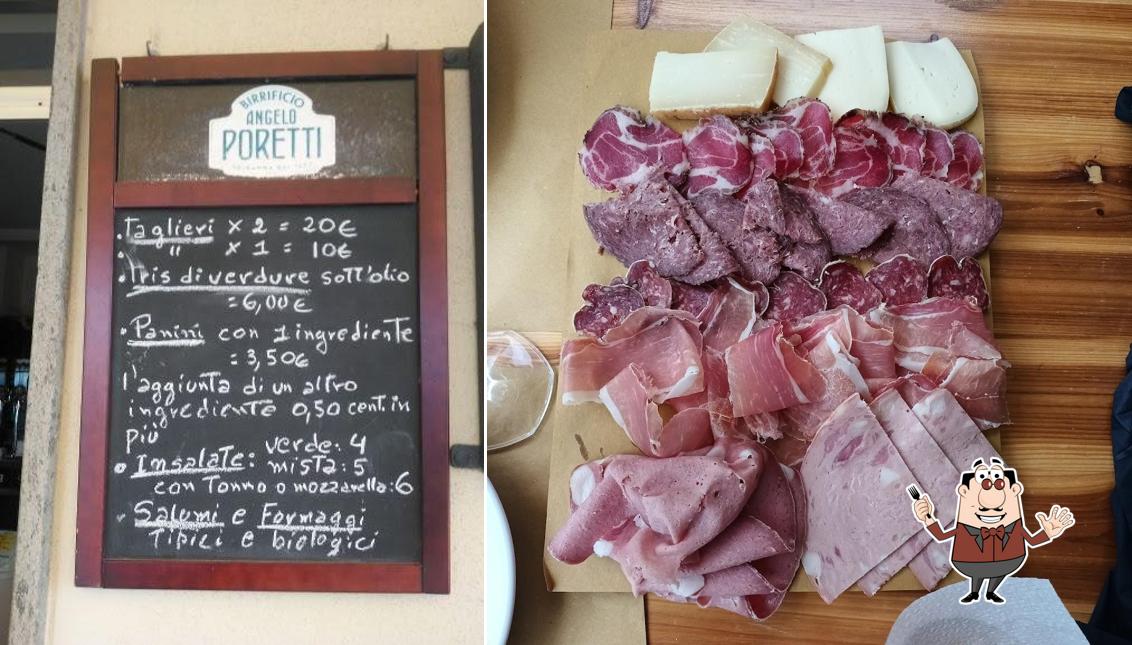 BIRRIFICIO
ANGELO
PORETTI
. Taglieri x 2 = 20€
. " x 1 = 10€
. Tris di verdure sott'olio
= 6,00€
. Panini con 1 ingrediente
= 3,50€
l'aggiunta di un altro
ingrediente 0,50 cent. in
più
. Insalate: verde: 4
mista: 5
con Tonno o mozzarella: 6
. Salumi e Formaggi
Tipici e biologici